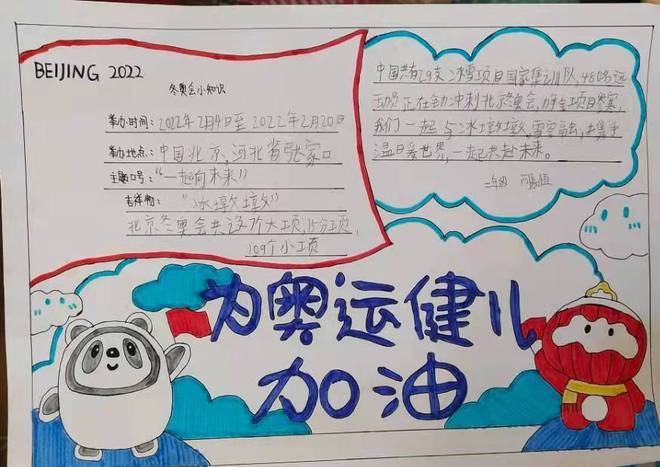 BEIJING 2022
冬奥会小知识
举办时间:2022年2月4日至2022年2月20日
举办地点:中国北京,河北省张家口
主题口号:“一起向未来”
吉祥物:“冰墩墩”
北京冬奥会共设7个大项,15分项,
109个小项
中国共有29支冰雪项目国家集训队,480名运
动员正在全力冲刺北京冬奥会,力争全项目参赛,
我们一起与冰墩墩,雪容融,携手
温暖世界,一起共赴未来。
二年级
为奥运健儿
加油